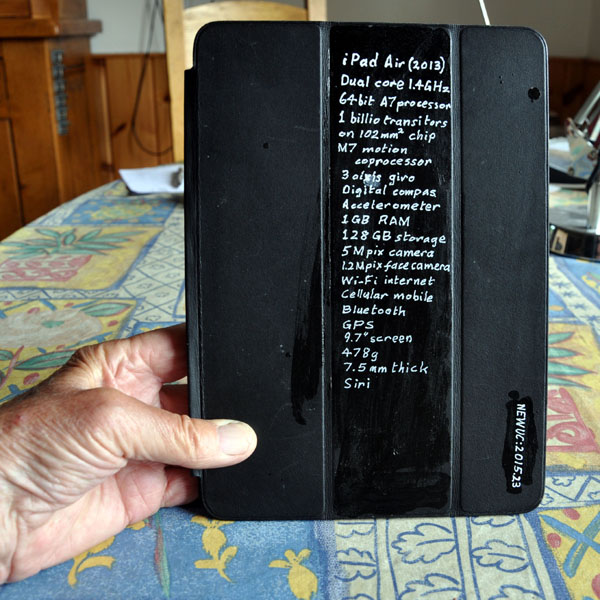 iPad Air (2013)
Dual core 1.4GHz
64bit A7 processor
1 billio transitors
on 102mm² chip
M7 motion
coprocessor
3 axis giro
Digital compas
Accelerometer
1GB RAM
128GB storage
5Mpix camera
1.2Mpix face camera
Wi-Fi internet
Cellular mobile
Bluetooth
GPS
9.7" screen
478g
7.5mm thick
Siri
NEWUC:2015.23